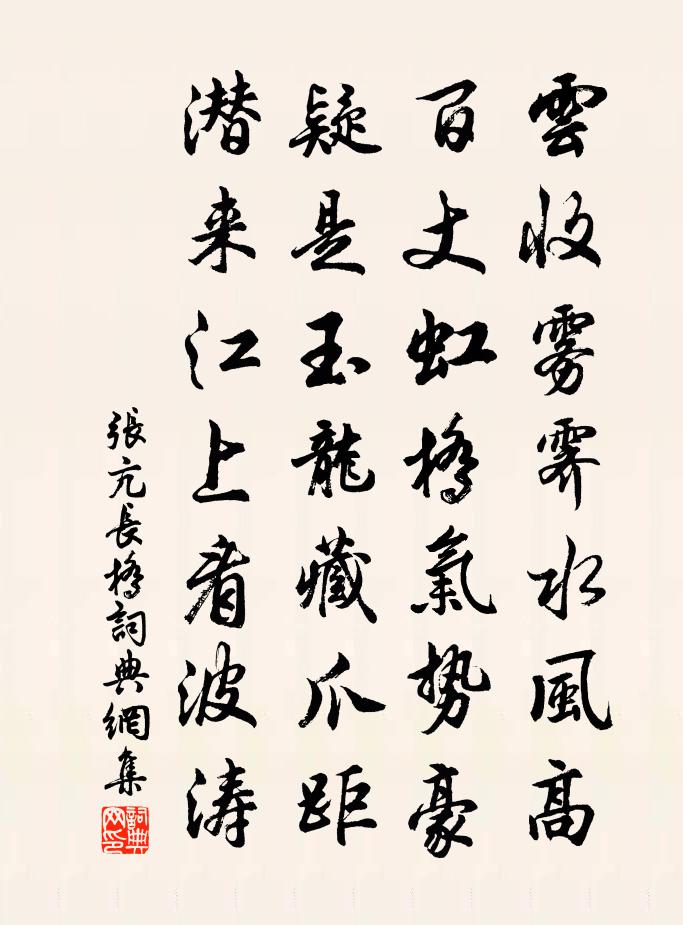 雲收雾霁水風高
百丈虹橋氣势豪
疑是玉龍藏爪距
潜来江上看波涛
張亢長橋詞典網集
詞典网印